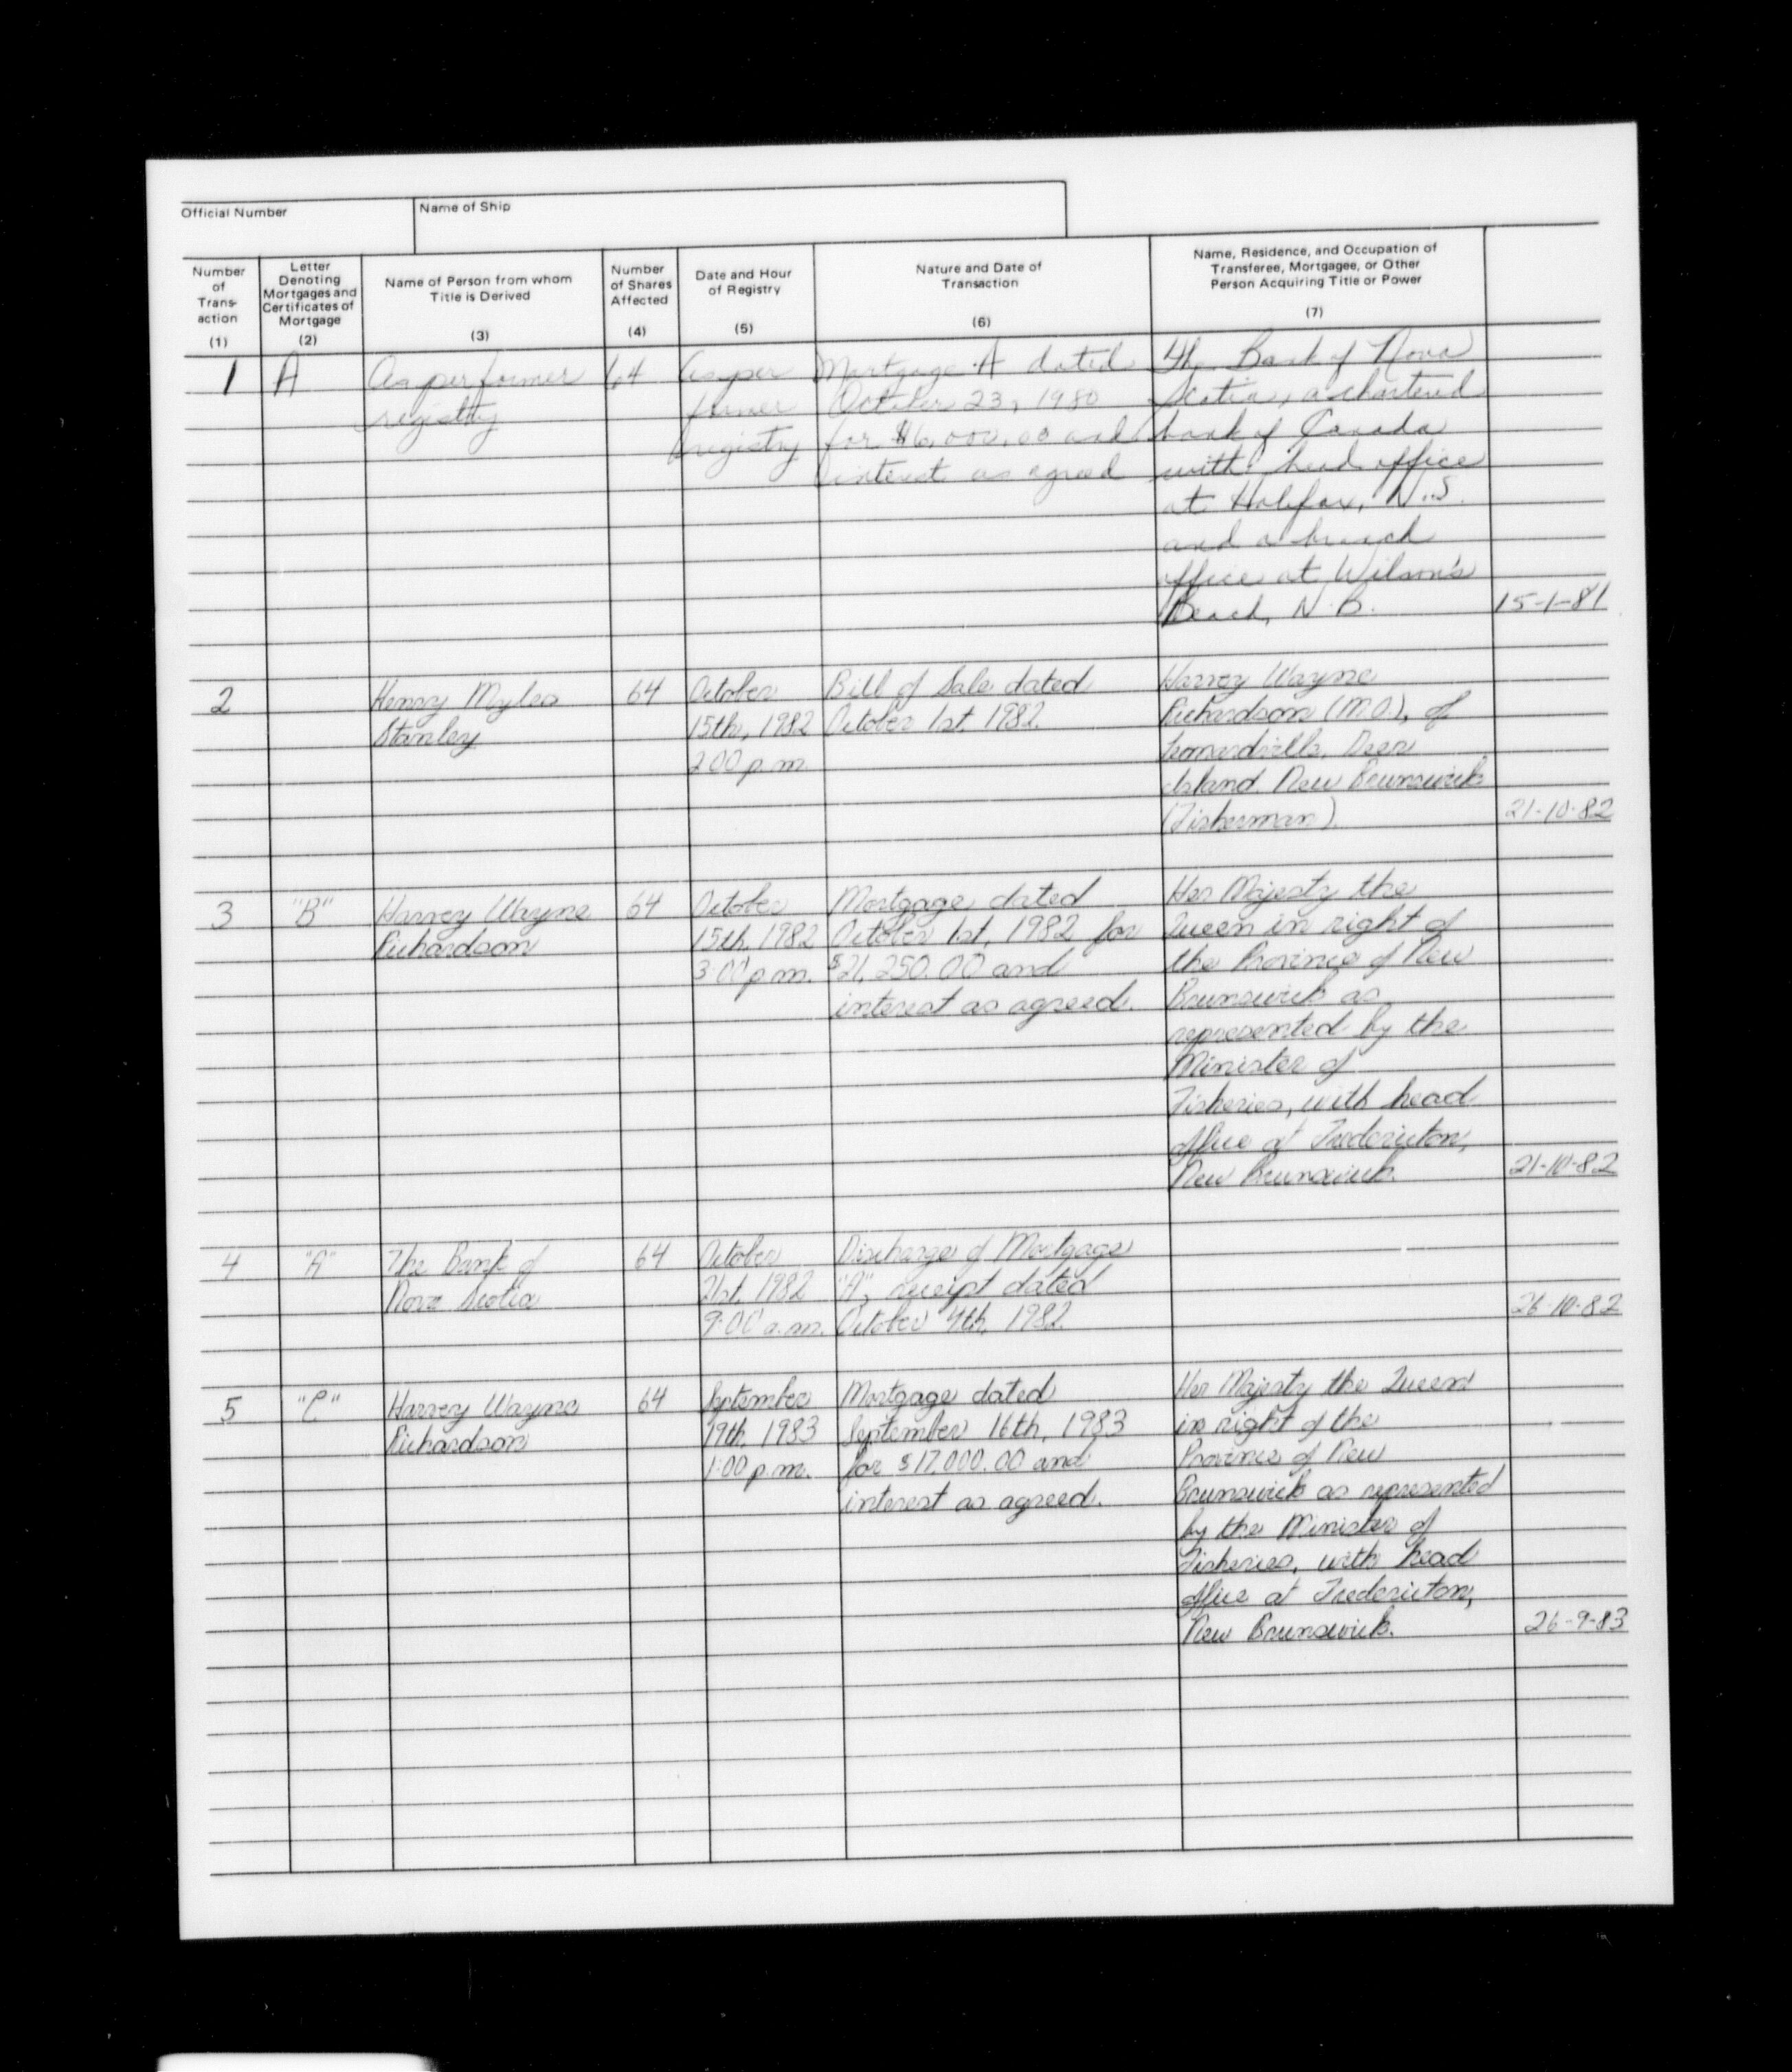 Official Number
Name of Ship
Number of Trans- action (1)
Letter Denoting Mortgages and Certificates of Mortgage (2)
Name of Person from whom Title is Derived (3)
Number of Shares Affected (4)
Date and Hour of Registry (5)
Nature and Date of Transaction (6)
Name, Residence, and Occupation of Transferee, Mortgagee, or Other Person Acquiring Title or Power (7)
1 A As per former 64 As per Mortgage A dated The Bank of Nova
registry former October 23, 1980 Scotia, a chartered
registry for $16,000.00 and bank of Canada
interest as agreed with head office
at Halifax, N.S.
and a branch
office at Wilson's
Beach, N.B. 15-1-81
2 Henry Myles 64 October Bill of Sale dated Harvey Wayne
Stanley 15th, 1982 October 1st, 1982. Richardson (M.O.), of
2:00 p.m. Leonardville, Deer
Island, New Brunswick
(Fisherman). 21-10-82
3 "B" Harvey Wayne 64 October Mortgage dated Her Majesty the
Richardson 15th, 1982 October 1st, 1982 for Queen in right of
3:00 p.m. $21,250.00 and the Province of New
interest as agreed. Brunswick as
represented by the
Minister of
Fisheries, with head
office at Fredericton,
New Brunswick. 21-10-82
4 "A" The Bank of 64 October Discharge of Mortgage
Nova Scotia 21st, 1982 "A", receipt dated
9:00 a.m. October 4th, 1982. 26-10-82
5 "C" Harvey Wayne 64 September Mortgage dated Her Majesty the Queen
Richardson 19th, 1983 September 16th, 1983 in right of the
1:00 p.m. for $17,000.00 and Province of New
interest as agreed. Brunswick as represented
by the Minister of
Fisheries, with head
office at Fredericton,
New Brunswick. 26-9-83